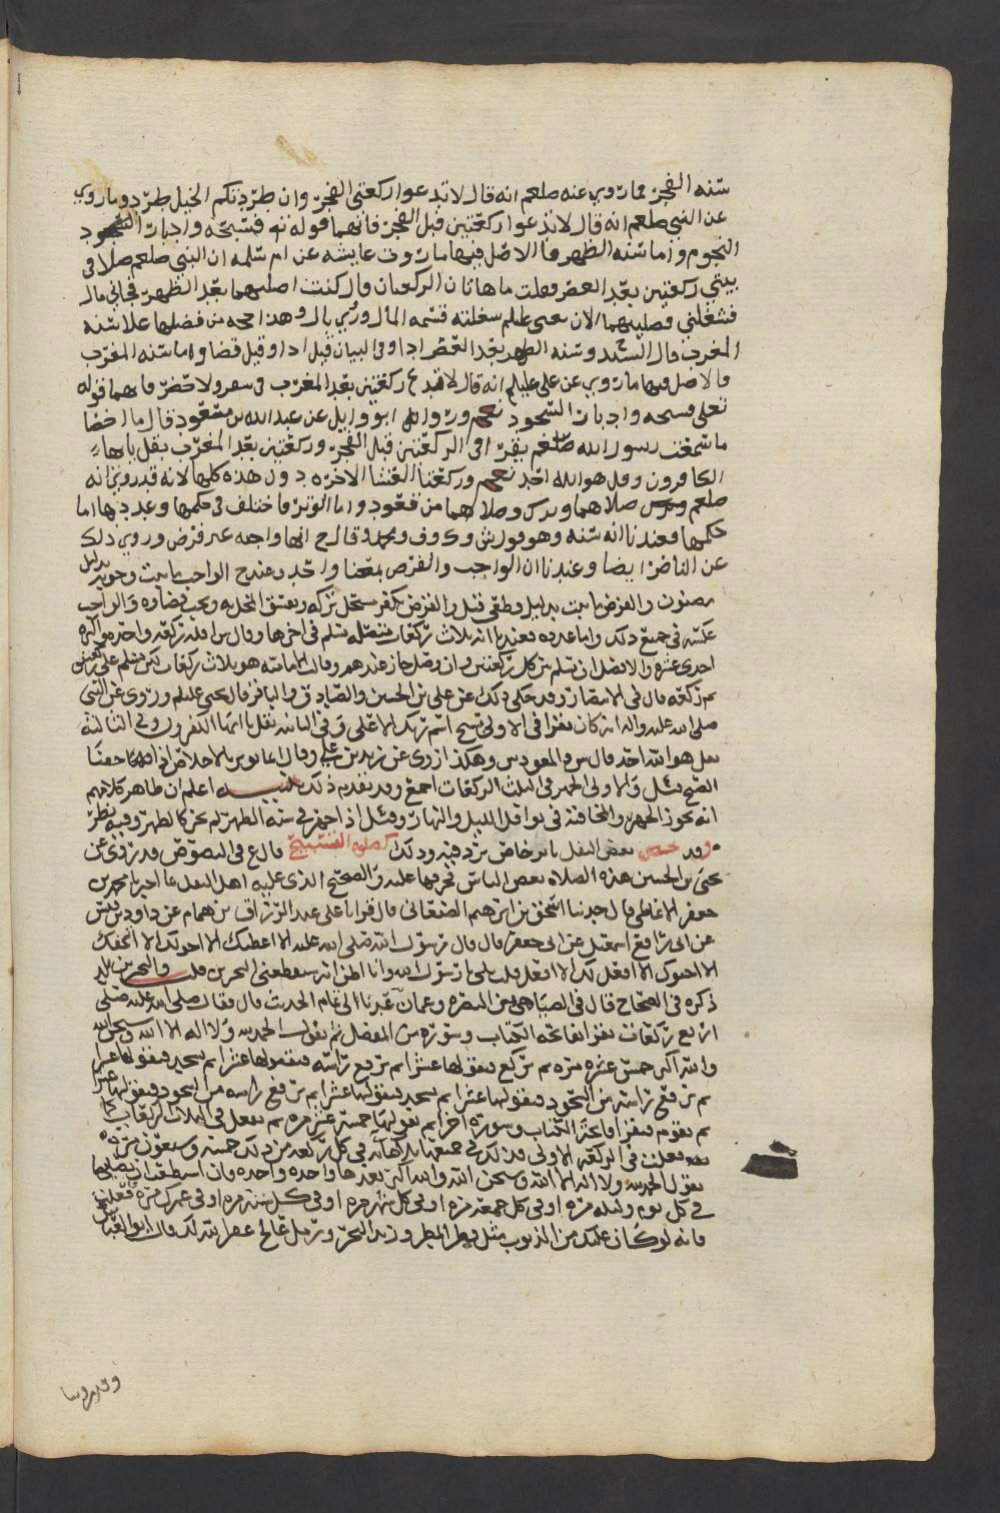 سنه الفجر فما روي عنه صلعم انه قال لا تدعوا ركعتي الفجر وان طردتكم الخيل طرد وما روي
عن النبي صلعم انه قال لا تدعوا ركعتين قبل الفجر فانهما قوله تع فسبحه وادبار النجوم
النجوم واما سنه الظهر فالاصل فيها ما روت عايشه عن ام سلمه ان النبي صلعم صلا في
بيتي ركعتين بعد العصر فقلت ما هاتان الركعتان قال كنت اصليهما بعد الظهر فجاني مال
فشغلني فصليتهما الان يعني عليلم شغلته قسمه المال وهذا حجه من فضلها علا سنه
المغرب قال السيد وسنه الظهر بعد العصر ادا وفي البيان قبل ادا وقيل قضا واما سنه المغرب
فالاصل فيها ما روي عن علي عليلم انه قال لا تدع ركعتين بعد المغرب في سفر ولا حضر فانهما قوله
تعلى فسبحه وادبار السجود نعم وروا ابو وايل عن عبد الله بن مسعود قال ما احصا
ما سمعت رسول الله صلعم يقرا في الركعتين قبل الفجر وركعتين بعد المغرب بقل يا ايها
الكافرون وقل هو الله احد نعم وركعتا العشا الاخره دون هذه كلها لانه قد روي انه
صلعم صلاهما وترك وصلاهما من قعود واما الوتر فاختلف في حكمها وعددها اما
حكمها فعندنا انه سنه وهو قول ش وك وف ومحمد وقال ح انها واجبه غير فرض وروي ذلك
عن الناصر ايضا وعندنا ان الواجب والفرض معنا واحد وعند ح الواجب ما ثبت وجوبه بدليل
مظنون والفرض ما ثبت بدليل قطعي قيل والفرض يكفر مستحل تركه ويفسق المخل به ويجب قضاوه والواجب
عكسه في جميع ذلك واما عدده فعندنا انه ثلاث ركعات متصله يسلم في اخرها وقال ش اقله ركعه واحده واكثره
احدى عشره والافضل ان يسلم من كل ركعتين وان وصل جاز عندهم وقالت الاماميه هو ثلاث ركعات لكن يسلم على ركعتين
ثم ركعه قال في الانتصار وقد حكي ذلك عن علي بن الحسين والصادق والباقر قال يحيى عليلم وروى عن النبي
صلى الله عليه واله انه كان يقرا في الاولى سبح اسم ربك الاعلى وفي الثانيه بقل يا ايها الكفرون وفي الثالثه
بقل هو الله احد قال س والمعوذتين وهكذا روى عن زيد بن علي وقال
الصبح مثل والاولى الجهر في الثلث الركعات اجمع وقد تقدم ذلك تنبيه اعلم ان ظاهر كلامهم
انه يجوز الجهر والمخافته في نوافل الليل والنهار ومثل اذا جهر في سنه الظهر لم يجز كالظهر وفيه نظر
وقد خص بعض النفل باثر خاص يرد فيه وذلك كصلوه التسبيح قال ع في النصوص قد روي عن
يحيى بن الحسين هذه الصلاه بعض الناس تحريمها عليه والصحيح الذي عليه اهل النقل ما اخبرنا محمد بن
جعفر الانماطي قال حدثنا اسحق بن ابرهيم الصنعاني قال قرانا على عبد الرزاق بن همام عن داود بن قيس
عن ابي رافع اسمعيل عن ابي جعفر قال قال رسول الله صلى الله عليه الا اعطيك الا احولك الا اتحفك
الا احبوك الا افعل لك الا افعل قلت بلى يا رسول الله وانا اظن انه سيقطعني البحرين قلت والبحرين بلد
ذكره في الصحاح قال في الضيا هي بين البصره وعمان عدنا الى تمام الحديث قال فقال صلى الله عليه صلي
اربع ركعات تقرا فاتحه الكتاب وسوره من المفصل ثم تقول الحمد لله ولا اله الا الله وسبحن الله
والله اكبر خمس عشره مره ثم تركع فتقولها عشرا ثم ترفع راسك فتقولها عشرا ثم تسجد فتقولها عشرا
ثم ترفع راسك من السجود فتقولها عشرا ثم تسجد فتقولها عشرا ثم ترفع راسك من السجود فتقولها عشرا
ثم تقوم فتقرا فاتحة الكتاب وسورة اخرا ثم تقولها خمسة عشر مره ثم تفعل في الثلاث الركعات كما
فعلت في الركعه الاولى فذلك في كل ركعه من ذلك خمسه وسبعون مره
تقول الحمد لله ولا اله الا الله وسبحن الله والله اكبر تعدها واحده واحده فان استطعت ان تصليها
في كل يوم وليله مره او في كل جمعه مره او في كل شهر مره او في كل سنه مره او في عمرك مره فعلت
فانه لو كان عليك من الذنوب مثل قطر المطر وزبد البحر ورمل عالج غفر الله لك قال ابو العباس
وقد روينا